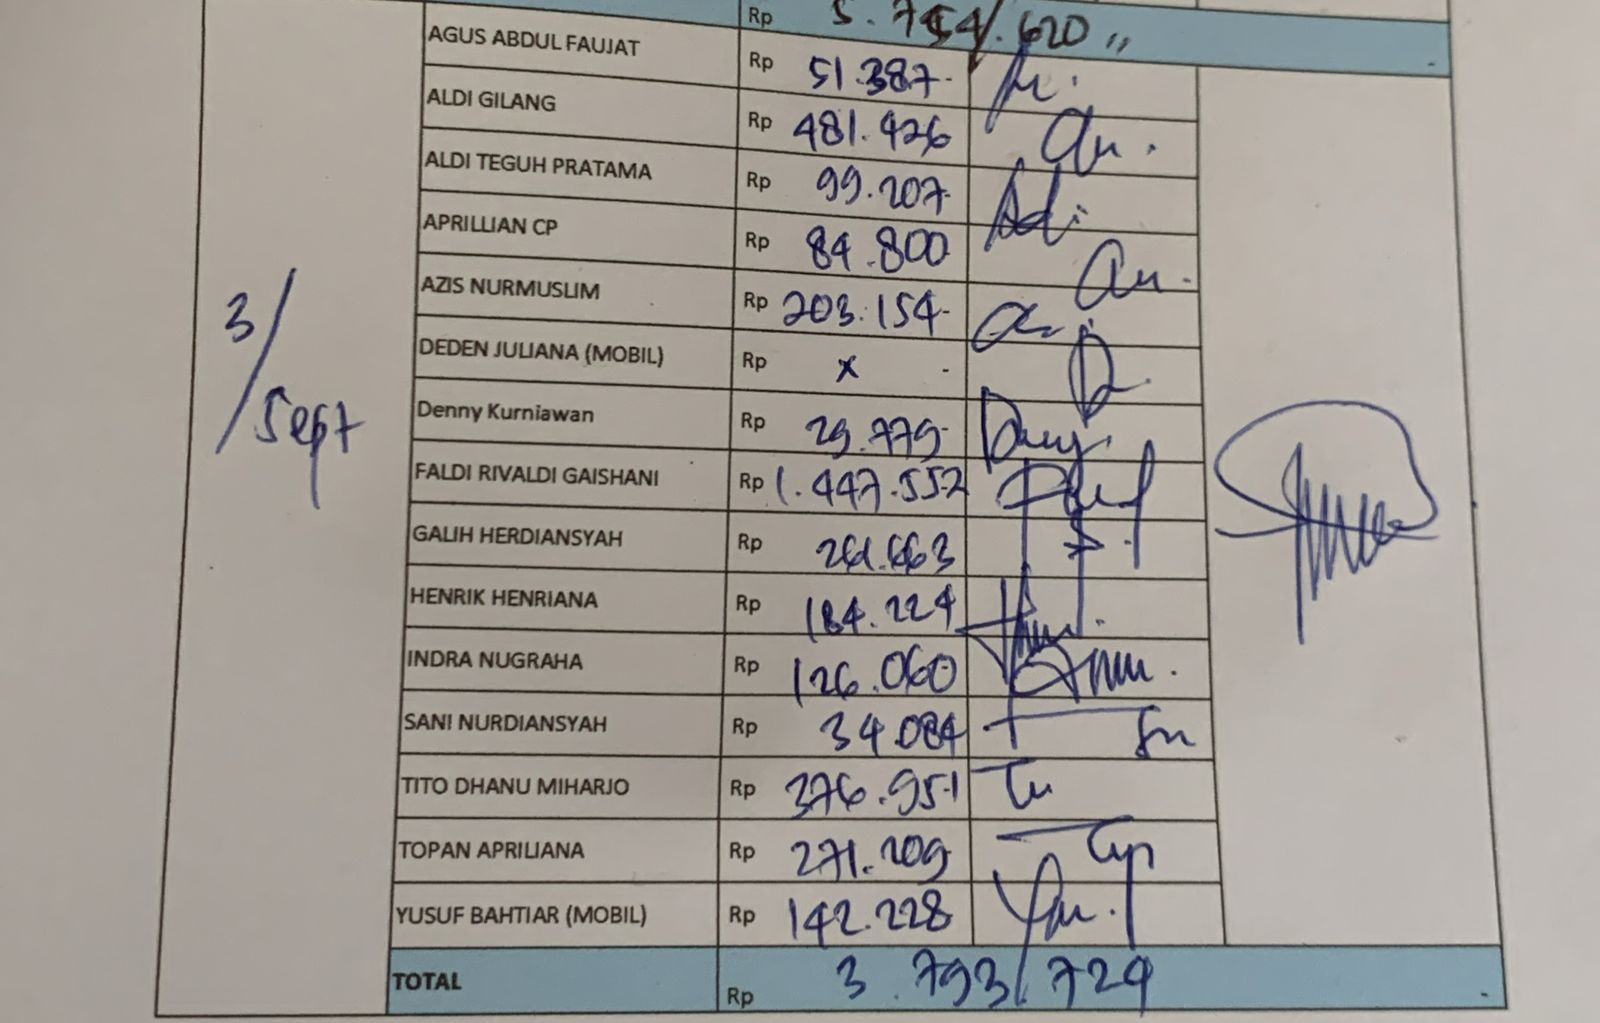 Rp 5.754/.620 ,,
AGUS ABDUL FAUJAT Rp 51.387-
ALDI GILANG Rp 481.426
ALDI TEGUH PRATAMA Rp 99.207
APRILLIAN CP Rp 84.800
AZIS NURMUSLIM Rp 203.154-
DEDEN JULIANA (MOBIL) Rp x -
3/Sept
Denny Kurniawan Rp 29.779-
FALDI RIVALDI GAISHANI Rp 1.447.552
GALIH HERDIANSYAH Rp
HENRIK HENRIANA Rp 184.224
INDRA NUGRAHA Rp 126.060
SANI NURDIANSYAH Rp 34.084
TITO DHANU MIHARJO Rp 376.951
TOPAN APRILIANA Rp 271.209
YUSUF BAHTIAR (MOBIL) Rp 142.228
TOTAL Rp 3.793/724 -